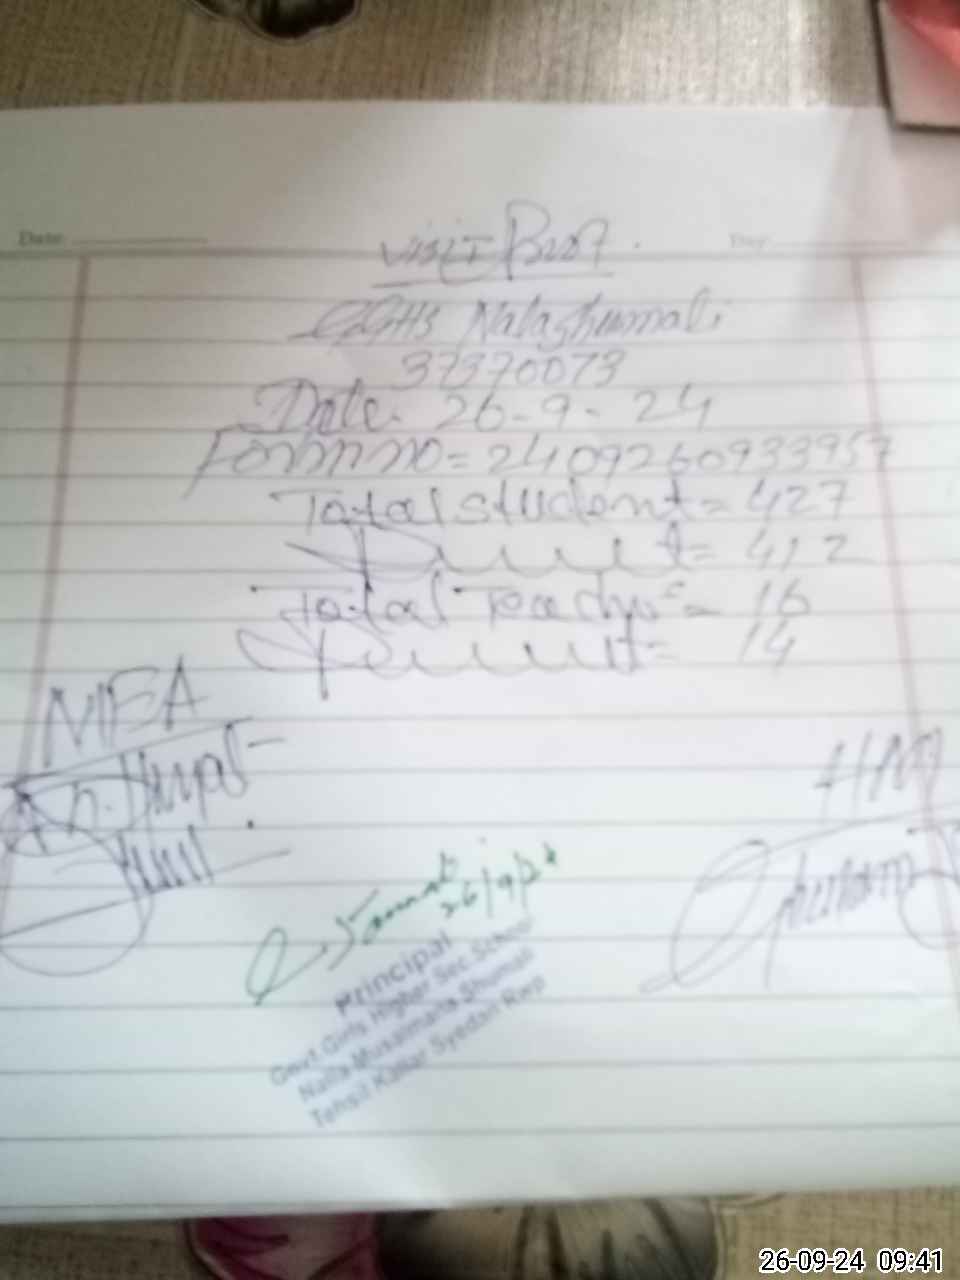 Date:
Day:
Visit Proof
GGHS Nalashumali
37370073
Date. 26-9-24
Form no = 2409260933957
Total student = 427
Present = 412
Total Teacher = 16
Present = 14
MEA
HM
26/9/24
Principal
Govt. Girls Higher Sec. School
Nalla Musalmana Shumali
Tehsil Kallar Syedan Rwp
26-09-24 09:41